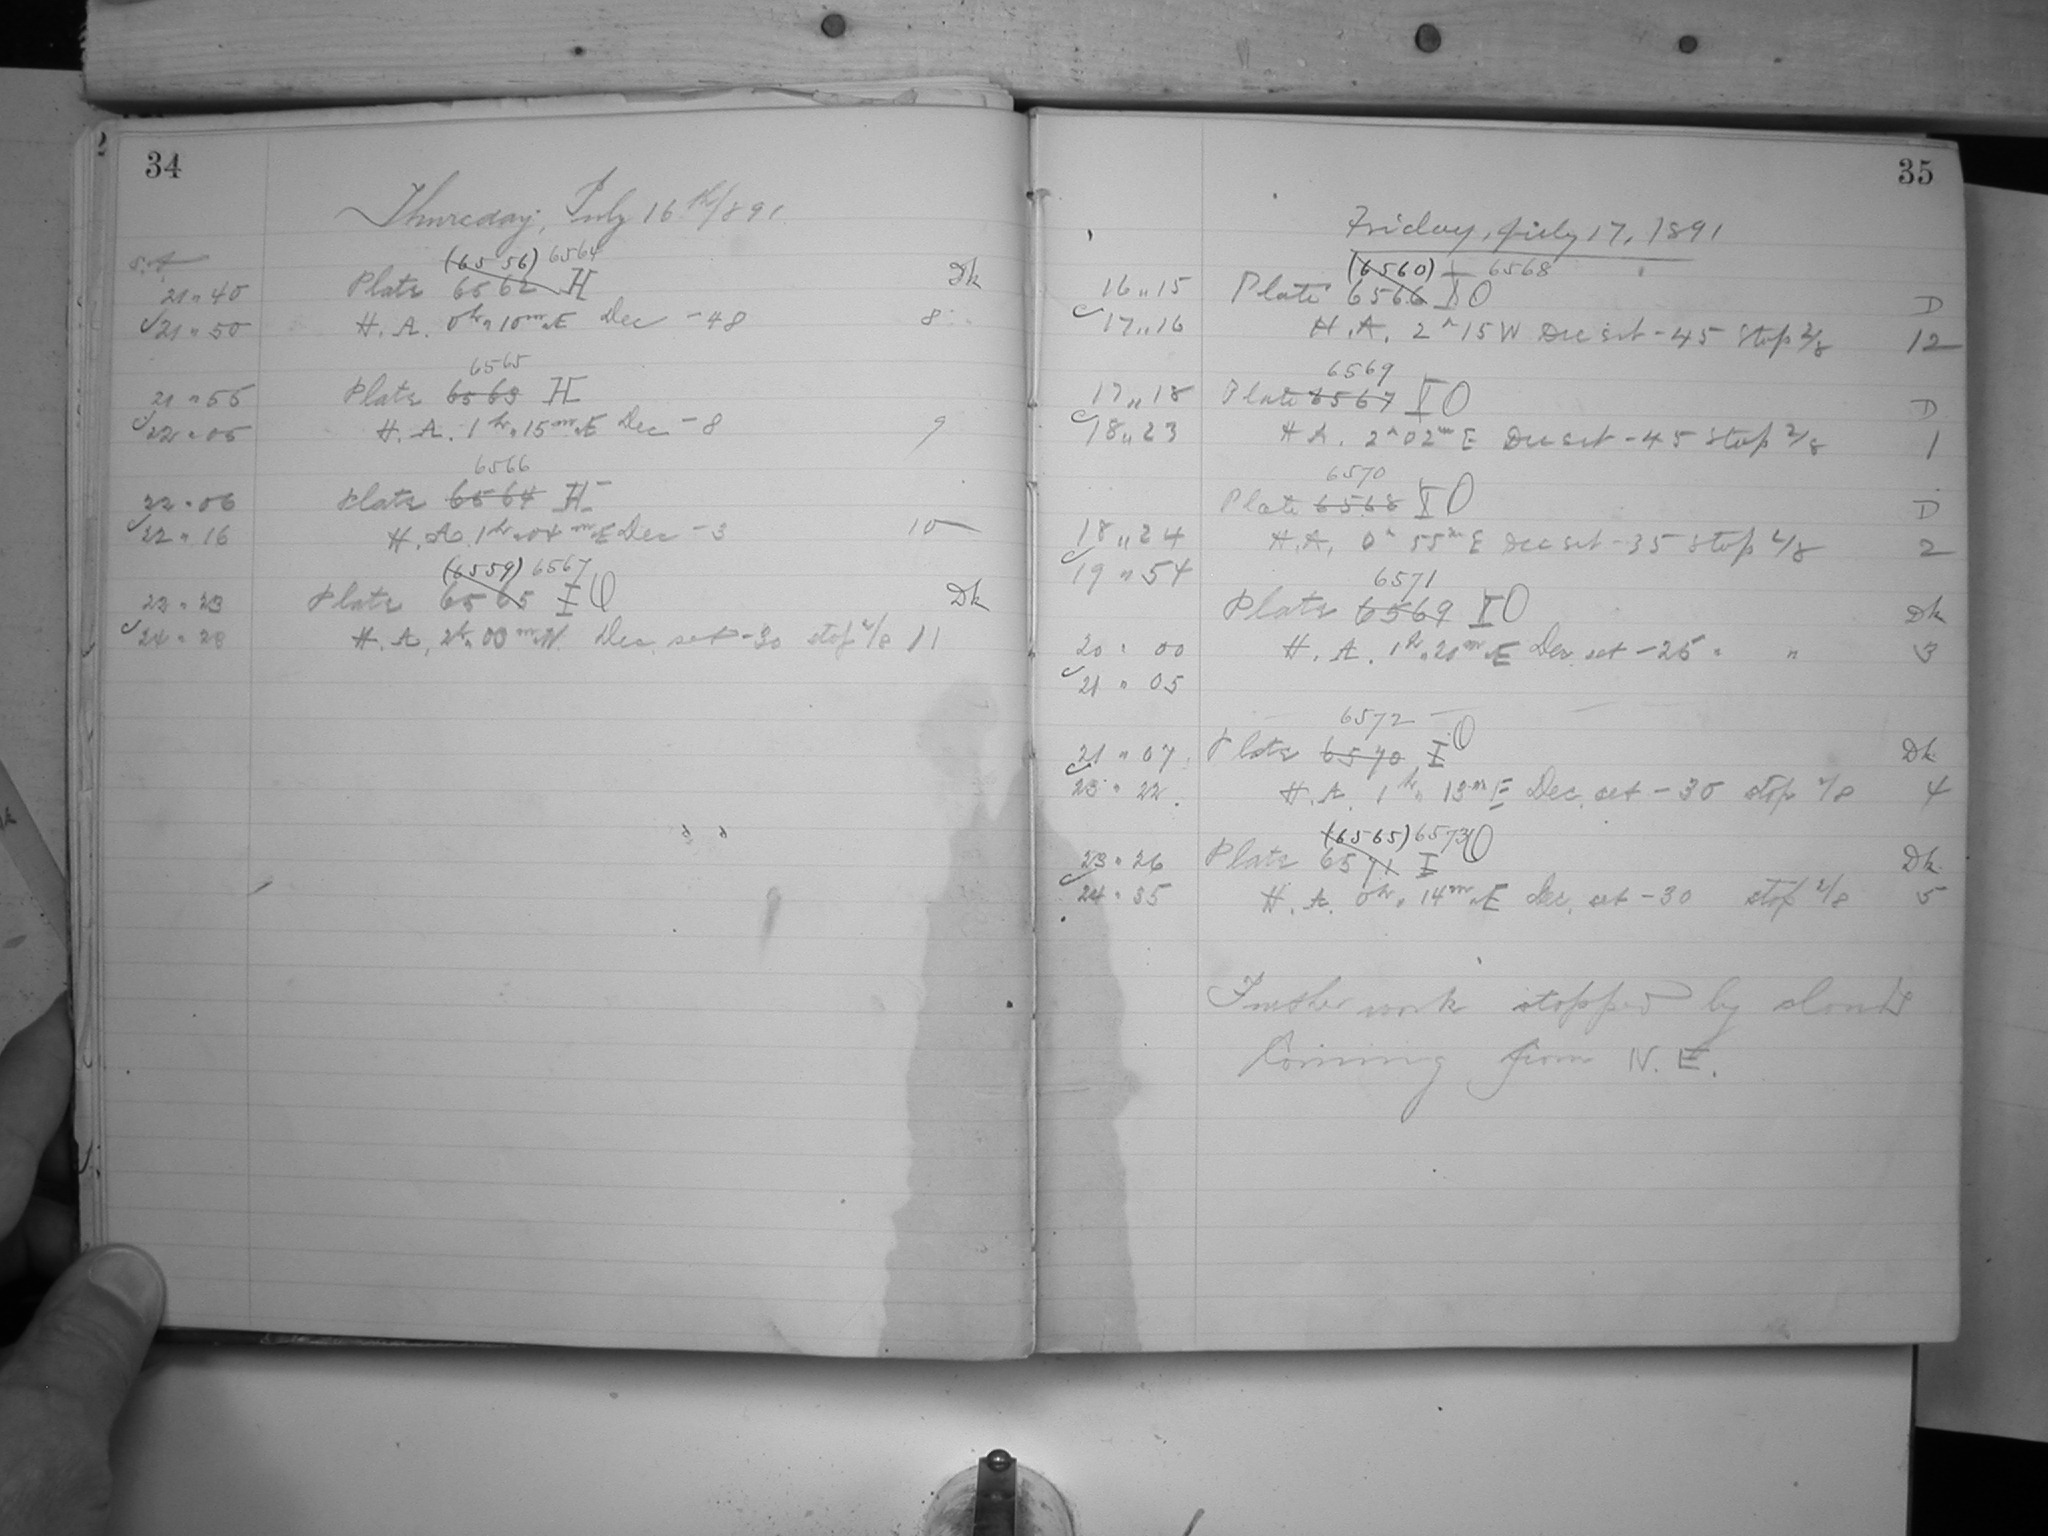 34
Thursday, July 16th/891
(6556) 6564
21 " 40 Plate 6562 H Dk
21 " 50 H. A. 0hr " 10m E Dec -48 8
6565
21 " 55 Plate 6563 H
22 " 05 H. A. 1hr " 15m E Dec -8 9
6566
22 " 06 Plate 6564 H
22 " 16 H. A. 1hr " 04m E Dec -3 10
(6559) 6567
22 " 23 Plate 6565 I O Dk
24 " 28 H. A. 2h " 03m W. Dec. set -30 stop 2/8 11
35
Friday, July 17, 1891
(6560) 6568
16 " 15 Plate 6566 I O D
17 " 16 H. A. 2h 15 W Dec set -45 stop 2/8 12
6569
17 " 18 Plate 6567 I O D
18 " 23 H A. 2h 02m E Dec set -45 stop 2/8 1
6570
Plate 6568 I O D
18 " 24 H. A. 0h 55m E Dec set -35 stop 2/8 2
19 " 54
6571
Plate 6569 I O Dk
20 " 00 H. A. 1h " 20m E Dec set -25 " " 3
21 " 05
6572
21 " 07 Plate 6570 I O Dk
23 " 22 H. A. 1hr " 13m E Dec. set -30 stop 2/8 4
(6565) 6573
23 " 26 Plate 6571 I O Dk
24 " 35 H. A. 0hr " 14m E Dec. set -30 stop 2/8 5
Further work stopped by clouds
coming from N. E.